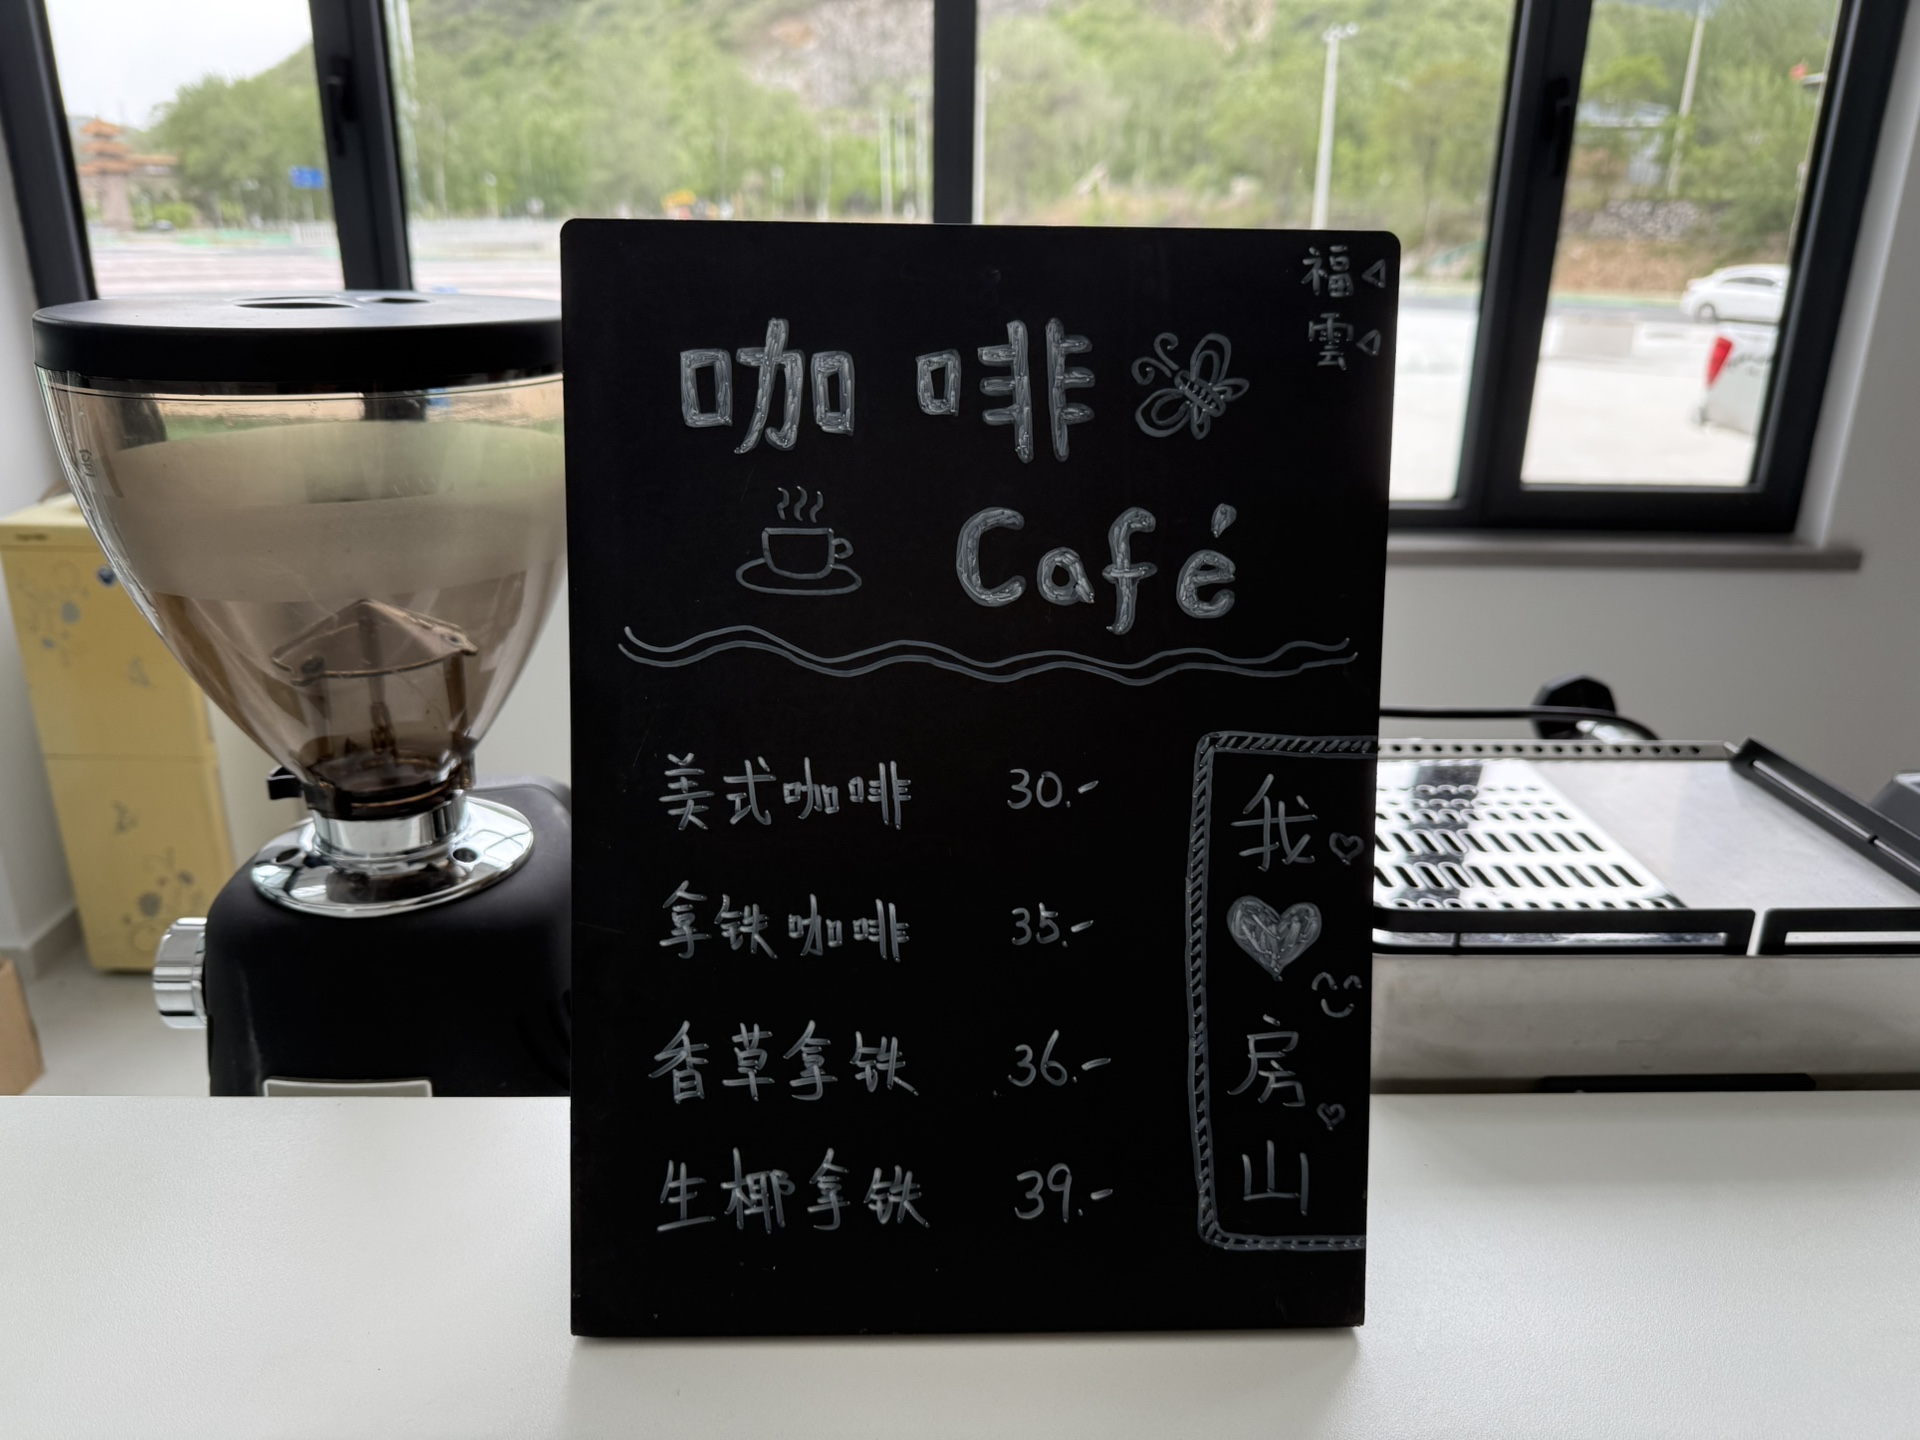 福
雲
咖啡
Café
美式咖啡 30.-
拿铁咖啡 35.-
香草拿铁 36.-
生椰拿铁 39.-
我
房
山